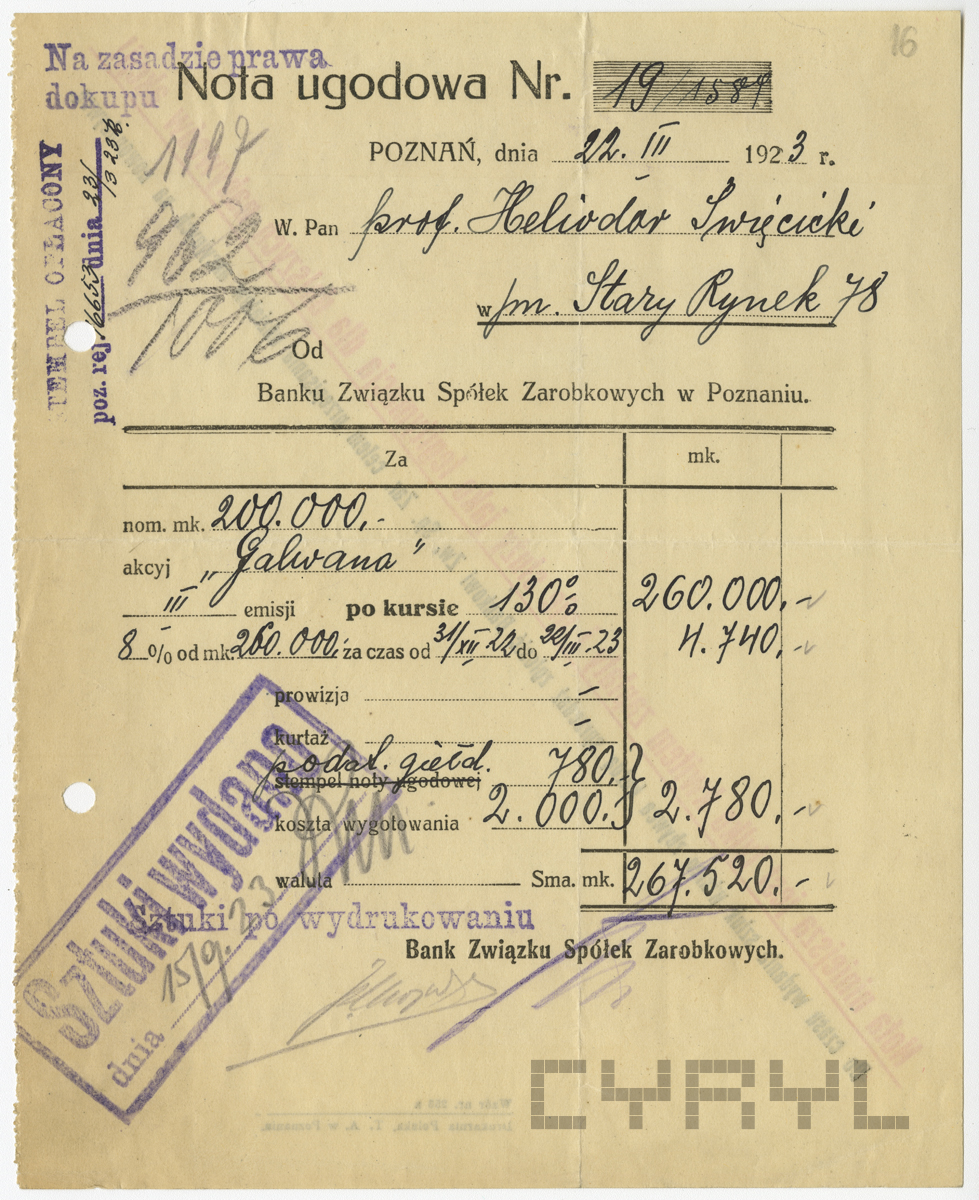 16
Na zasadzie prawa
dokupu
Nota ugodowa Nr. 19/1589
STEMPEL OPŁACONY
poz. rej. 6653 dnia 23/3 23 r.
POZNAŃ, dnia 22. III 1923 r.
1197
962
100%
W. Pan prof. Heliodor Święcicki
w/m. Stary Rynek 78
Od
Banku Związku Spółek Zarobkowych w Poznaniu.
Za mk.
nom. mk. 200.000,-
akcyj „Galwana"
III emisji po kursie 130% 260.000,-
8 % od mk. 260.000; za czas od 31/XII 22 do 22/III 23 4.740,-
prowizja -
kurtaż -
podat. giełd. 780.-
stempel noty ugodowej
koszta wygotowania 2.000.- 2.780,-
waluta Sma. mk. 267.520,-
Sztuki po wydrukowaniu
Bank Związku Spółek Zarobkowych.
Sztuki wydano
dnia 15/9. 23
CYRYL